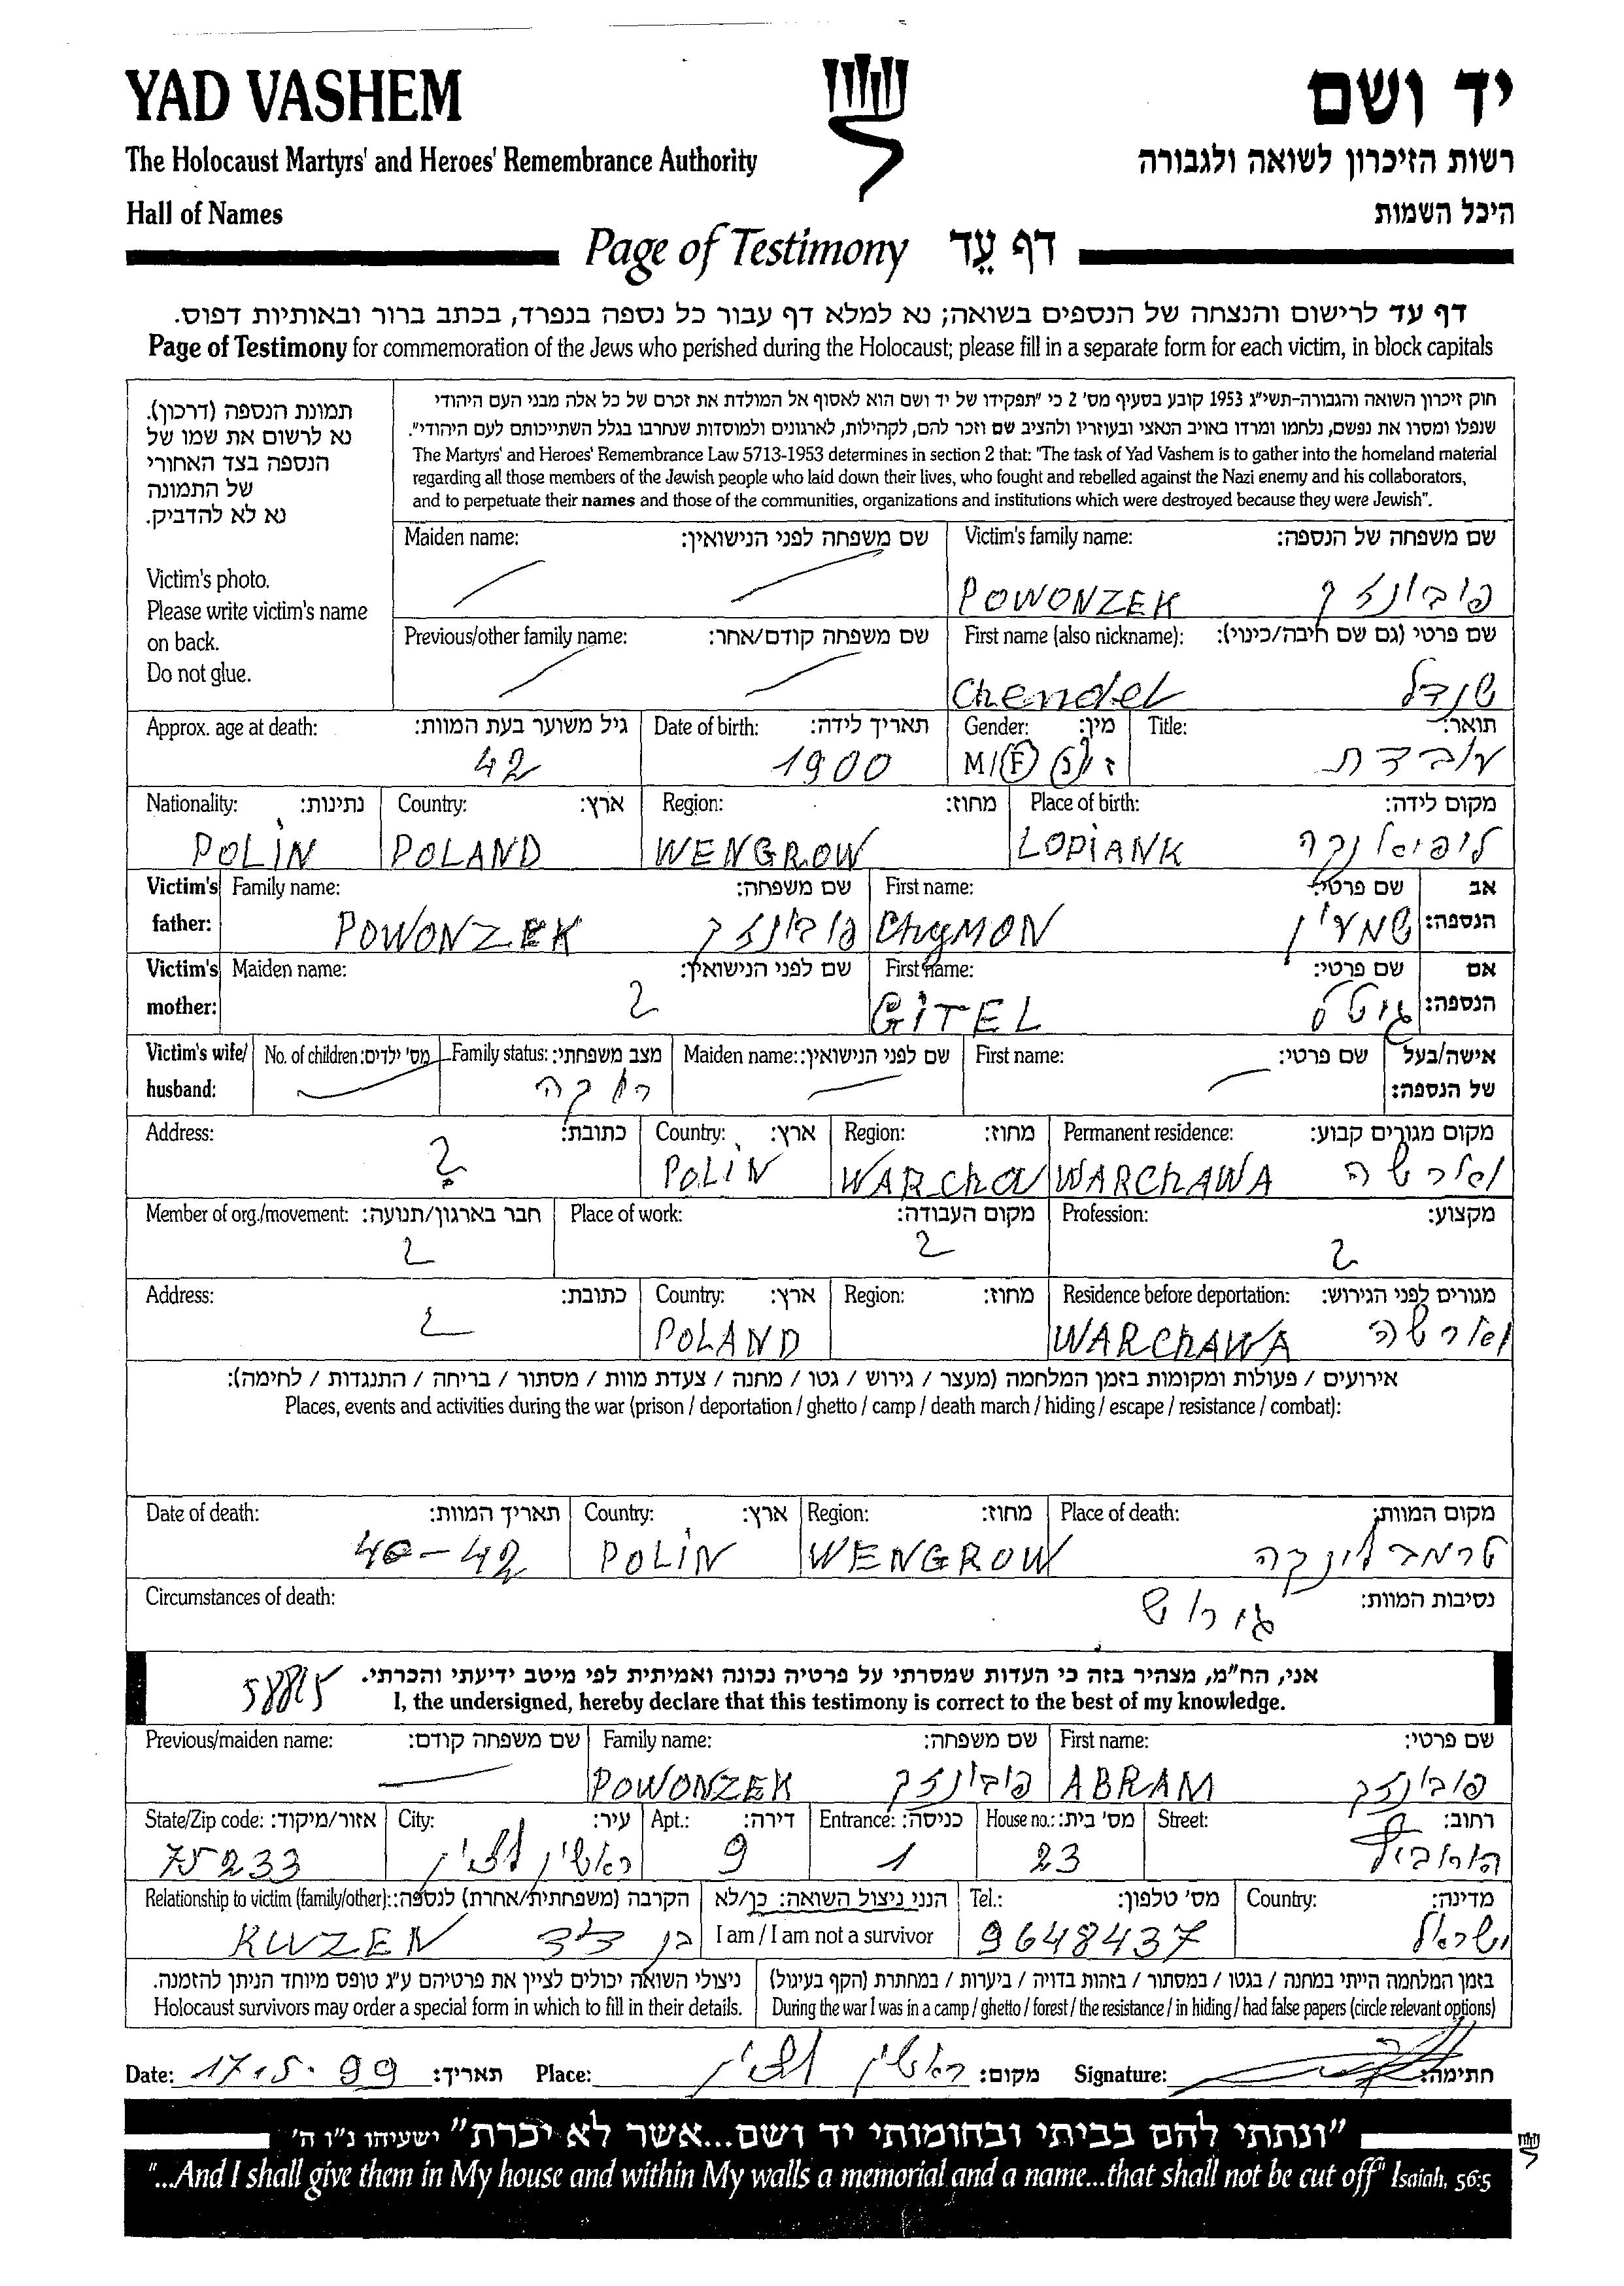 YAD VASHEM
יד ושם
The Holocaust Martyrs' and Heroes' Remembrance Authority
רשות הזיכרון לשואה ולגבורה
Hall of Names
היכל השמות
Page of Testimony דף עֵד
דף עד לרישום והנצחה של הנספים בשואה; נא למלא דף עבור כל נספה בנפרד, בכתב ברור ובאותיות דפוס.
Page of Testimony for commemoration of the Jews who perished during the Holocaust; please fill in a separate form for each victim, in block capitals
תמונת הנספה (דרכון).
נא לרשום את שמו של
הנספה בצד האחורי
של התמונה
נא לא להדביק.
Victim's photo.
Please write victim's name
on back.
Do not glue.
חוק זיכרון השואה והגבורה-תשי"ג 1953 קובע בסעיף מס' 2 כי "תפקידו של יד ושם הוא לאסוף אל המולדת את זכרם של כל אלה מבני העם היהודי
שנפלו ומסרו את נפשם, נלחמו ומרדו באויב הנאצי ובעוזריו ולהציב שם וזכר להם, לקהילות, לארגונים ולמוסדות שנחרבו בגלל השתייכותם לעם היהודי".
The Martyrs' and Heroes' Remembrance Law 5713-1953 determines in section 2 that: "The task of Yad Vashem is to gather into the homeland material
regarding all those members of the Jewish people who laid down their lives, who fought and rebelled against the Nazi enemy and his collaborators,
and to perpetuate their names and those of the communities, organizations and institutions which were destroyed because they were Jewish".
Maiden name: שם משפחה לפני הנישואין: Victim's family name: שם משפחה של הנספה:
POWONZEK פובונזק
Previous/other family name: שם משפחה קודם/אחר: First name (also nickname): שם פרטי (גם שם חיבה/כינוי):
Chendel שנדל
Approx. age at death: גיל משוער בעת המוות: Date of birth: תאריך לידה: Gender: מין: Title: תואר:
42 1900 M/F ז/נ עובדת
Nationality: נתינות: Country: ארץ: Region: מחוז: Place of birth: מקום לידה:
POLIN POLAND WENGROW LOPIANK לופיאנקה
Victim's father: Family name: שם משפחה: First name: שם פרטי: אב הנספה:
POWONZEK פובונזק ChyMON שמעון
Victim's mother: Maiden name: שם לפני הנישואין: First name: שם פרטי: אם הנספה:
? GITEL גיטל
Victim's wife/ husband: No. of children: מס' ילדים: Family status: מצב משפחתי: Maiden name: שם לפני הנישואין: First name: שם פרטי: אישה/בעל של הנספה:
רווקה
Address: כתובת: Country: ארץ: Region: מחוז: Permanent residence: מקום מגורים קבוע:
? POLIN WARCha WARCHAWA וארשה
Member of org./movement: חבר בארגון/תנועה: Place of work: מקום העבודה: Profession: מקצוע:
? ? ?
Address: כתובת: Country: ארץ: Region: מחוז: Residence before deportation: מגורים לפני הגירוש:
? POLAND WARCHAWA וארשה
אירועים / פעולות ומקומות בזמן המלחמה (מעצר / גירוש / גטו / מחנה / צעדת מוות / מסתור / בריחה / התנגדות / לחימה):
Places, events and activities during the war (prison / deportation / ghetto / camp / death march / hiding / escape / resistance / combat):
Date of death: תאריך המוות: Country: ארץ: Region: מחוז: Place of death: מקום המוות:
40-42 POLIN WENGROW טרמבלינקה
Circumstances of death: נסיבות המוות:
גירוש
אני, הח"מ, מצהיר בזה כי העדות שמסרתי על פרטיה נכונה ואמיתית לפי מיטב ידיעתי והכרתי.
I, the undersigned, hereby declare that this testimony is correct to the best of my knowledge.
Previous/maiden name: שם משפחה קודם: Family name: שם משפחה: First name: שם פרטי:
POWONZEK פובונזק ABRAM פובונזק
State/Zip code: אזור/מיקוד: City: עיר: Apt.: דירה: Entrance: כניסה: House no.: מס' בית: Street: רחוב:
75233 ראשון לציון 9 1 23
Relationship to victim (family/other): הקרבה (משפחתית/אחרת) לנספה: הנני ניצול השואה: כן/לא Tel.: מס' טלפון: Country: מדינה:
KUZEN בן דוד I am / I am not a survivor 9648437 ישראל
ניצולי השואה יכולים לציין את פרטיהם ע"ג טופס מיוחד הניתן להזמנה.
Holocaust survivors may order a special form in which to fill in their details.
בזמן המלחמה הייתי במחנה / בגטו / במסתור / בזהות בדויה / ביערות / במחתרת (הקף בעיגול)
During the war I was in a camp / ghetto / forest / the resistance / in hiding / had false papers (circle relevant options)
Date: 17.5.99 תאריך: Place: ראשון לציון מקום: Signature: חתימה:
"ונתתי להם בביתי ובחומותי יד ושם...אשר לא יכרת" ישעיהו נ"ו ה'
"...And I shall give them in My house and within My walls a memorial and a name...that shall not be cut off" Isaiah, 56:5